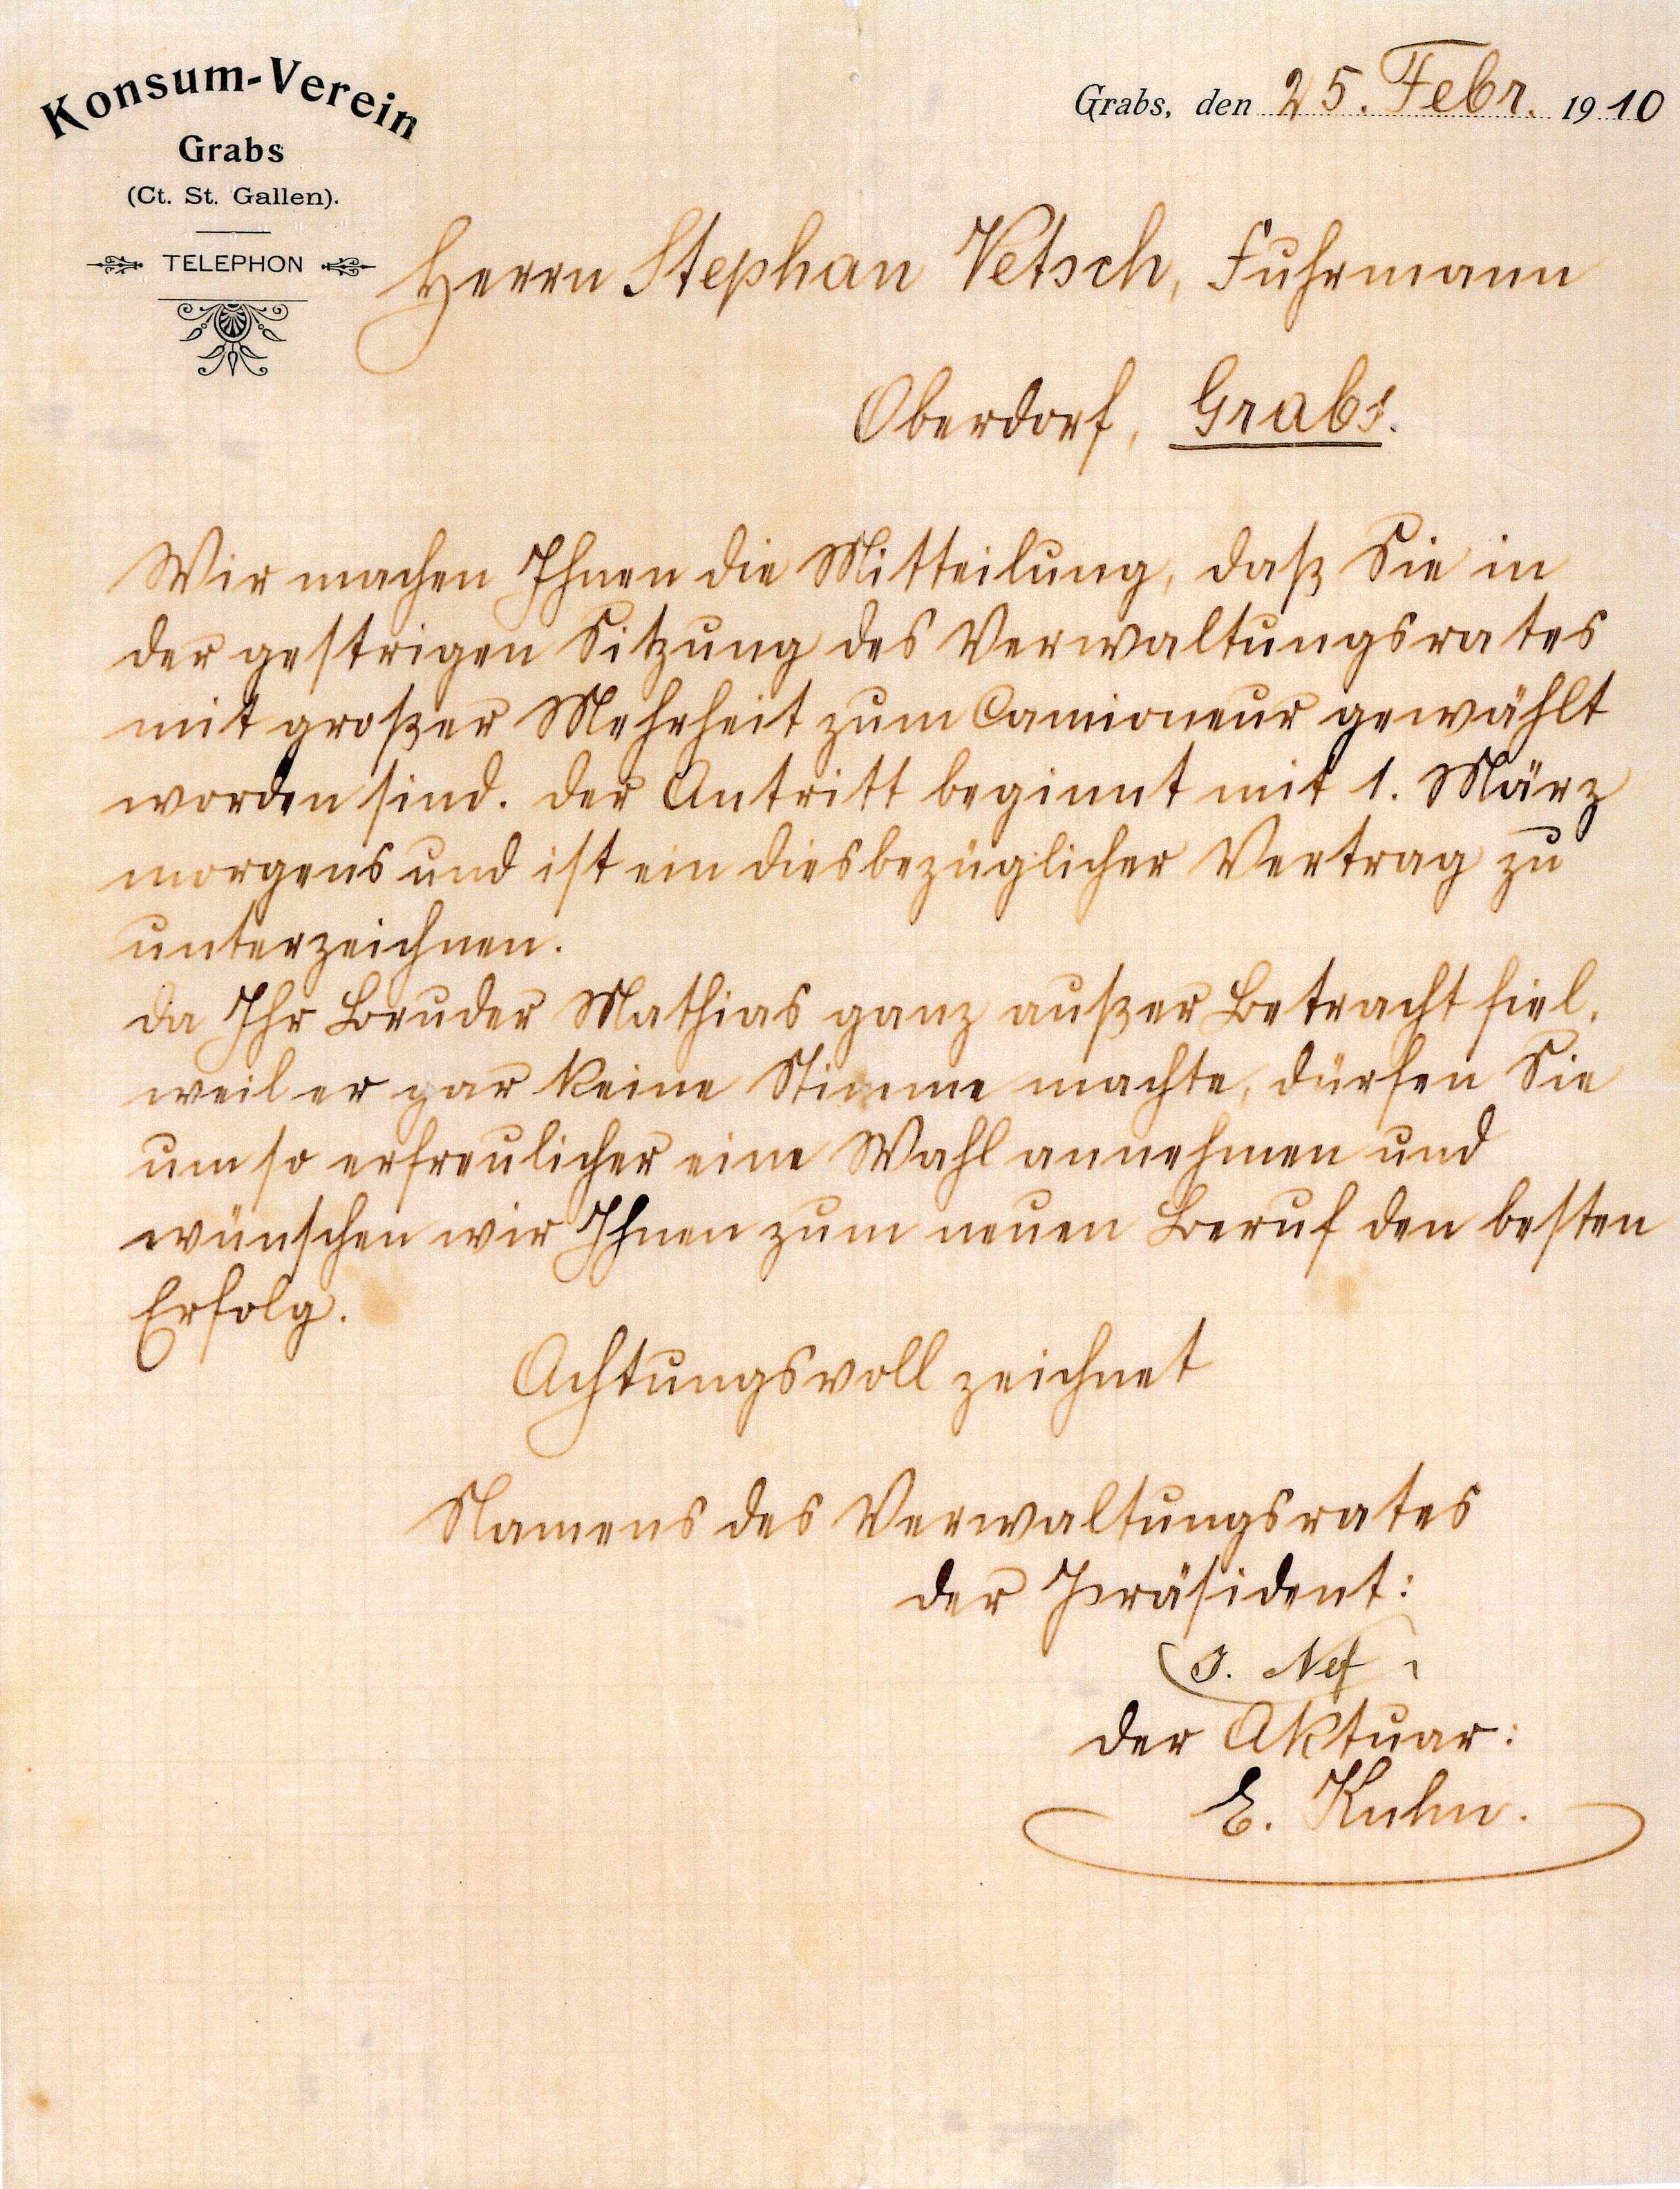 Konsum-Verein
Grabs
(Ct. St. Gallen).
TELEPHON
Grabs, den 25. Febr. 1910
Herrn Stephan Vetsch, Fuhrmann
Oberdorf, Grabs.
Wir machen Ihnen die Mitteilung, daß Sie in
der gestrigen Sitzung des Verwaltungsrates
mit großer Mehrheit zum Camioneur gewählt
worden sind. Der Antritt beginnt mit 1. März
morgens und ist ein diesbezüglicher Vertrag zu
unterzeichnen.
Da Ihr Bruder Mathias ganz außer Betracht fiel,
weil er gar keine Stimme machte, dürfen Sie
um so erfreulicher eine Wahl annehmen und
wünschen wir Ihnen zum neuen Beruf den besten
Erfolg.
Achtungsvoll zeichnet
Namens des Verwaltungsrates
Der Präsident:
J. Nef
Der Aktuar:
E. Kuhn.